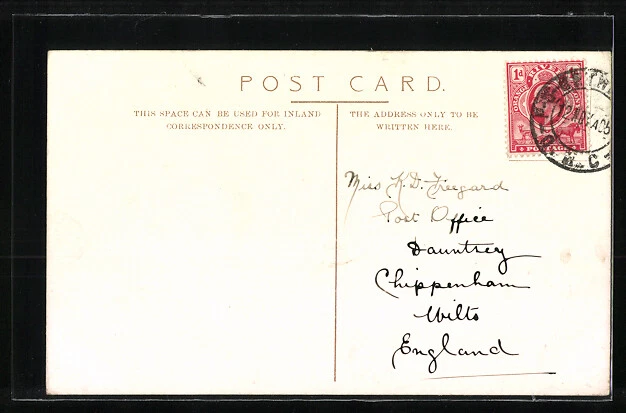 POST CARD.
THIS SPACE CAN BE USED FOR INLAND
CORRESPONDENCE ONLY.
THE ADDRESS ONLY TO BE
WRITTEN HERE.
1d
ORANGE RIVER
POSTAGE
M.C
Miss K.D. Freegard
Post Office
Dauntsey
Chippenham
Wilts
England